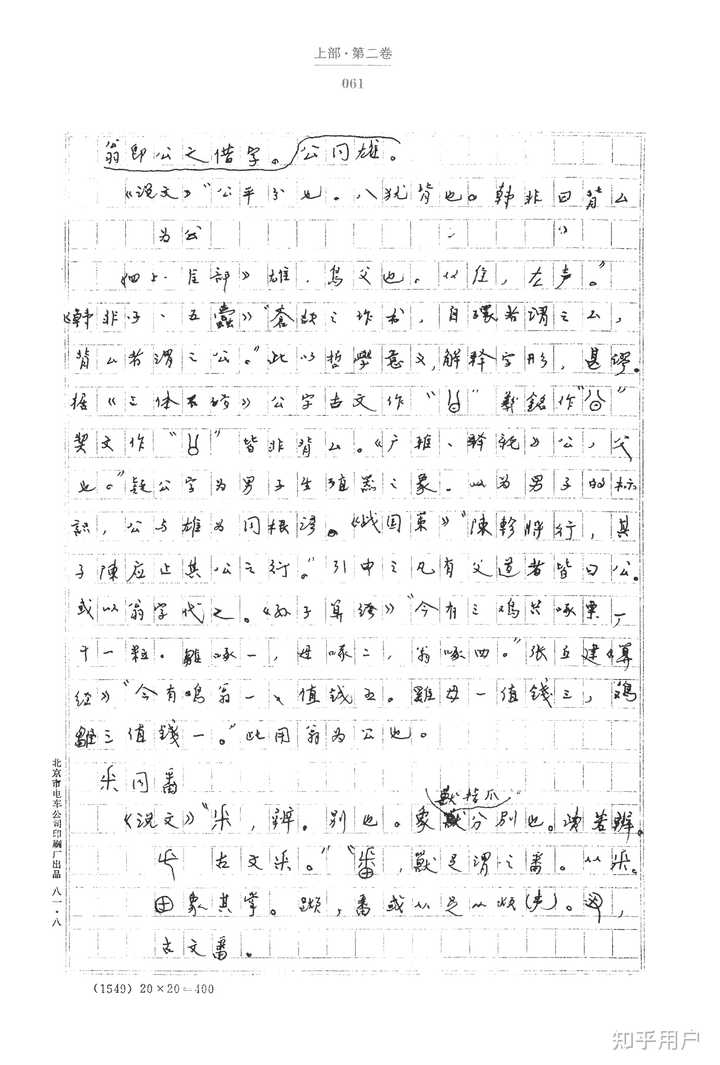 上部·第二卷
061
翁即公之借字。公同雄。
《说文》“公平分也。八犹背也。韩非曰背厶
为公
隹部》雄，鸟父也，从隹，厷声。”
《韩非子、五蠹》“蒼颉之作书，自環者谓之厶，
背厶者谓之公。”此以哲學意义，解释字形，甚谬。
据《三体石经》公字古文作“ ”彝銘作“ ”
契文作“ ”皆非背厶。《广雅、释亲》公，父
也。”疑公字为男子生殖器之象，以为男子的标
识，公与雄为同根谬。《战国策》“陳軫将行，其
子陳应止其公之行。”引申之凡有父道者皆曰公。
或以翁字代之。《孙子算经》“今有三鸡共啄粟一
千一粒。雛啄一，母啄二，翁啄四。”张丘建《算
经》“今有鸡翁一、值钱五。雞母一值钱三，鸡
雛三值錢一。”此用翁为公也。
釆同番
獸指爪
《说文》“釆，辨。别也。象獸分别也。讀若辨。
古文釆。”“番，獸足谓之番。从釆。
田象其掌。蹞，番或从足从烦(声)。 ，
古文番。
北京市电车公司印刷厂出品 八一·八
(1549) 20×20=400
知乎用户